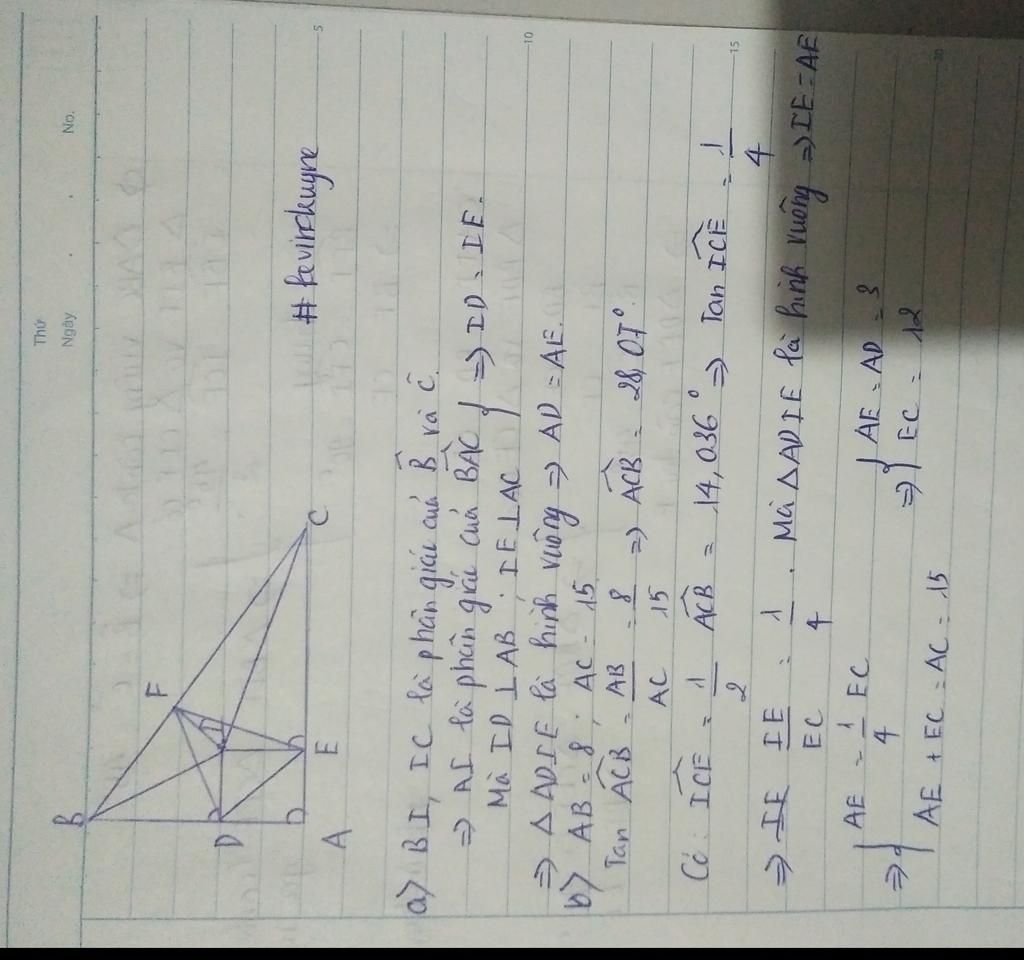 Thứ
Ngày . . No.
B
F
D
I
C
A
E
# kevinkhuyne
5
a) BI, IC là phân giác của B̂ và Ĉ.
⇒ AI là phân giác của BAC } ⇒ ID = IE.
Mà ID ⊥ AB ; IE ⊥ AC
⇒ Δ ADIE là hình vuông ⇒ AD = AE.
10
b) AB = 8 ; AC = 15
Tan ACB = AB/AC = 8/15 ⇒ ACB = 28,07°.
Có: ICE = 1/2 ACB = 14,036° ⇒ Tan ICE = 1/4
15
⇒ IE IE/EC = 1/4 . Mà Δ ADIE là hình vuông ⇒ IE = AE
⇒ { AE = 1/4 EC
AE + EC = AC = 15
⇒ { AE = AD = 3
EC = 12
20